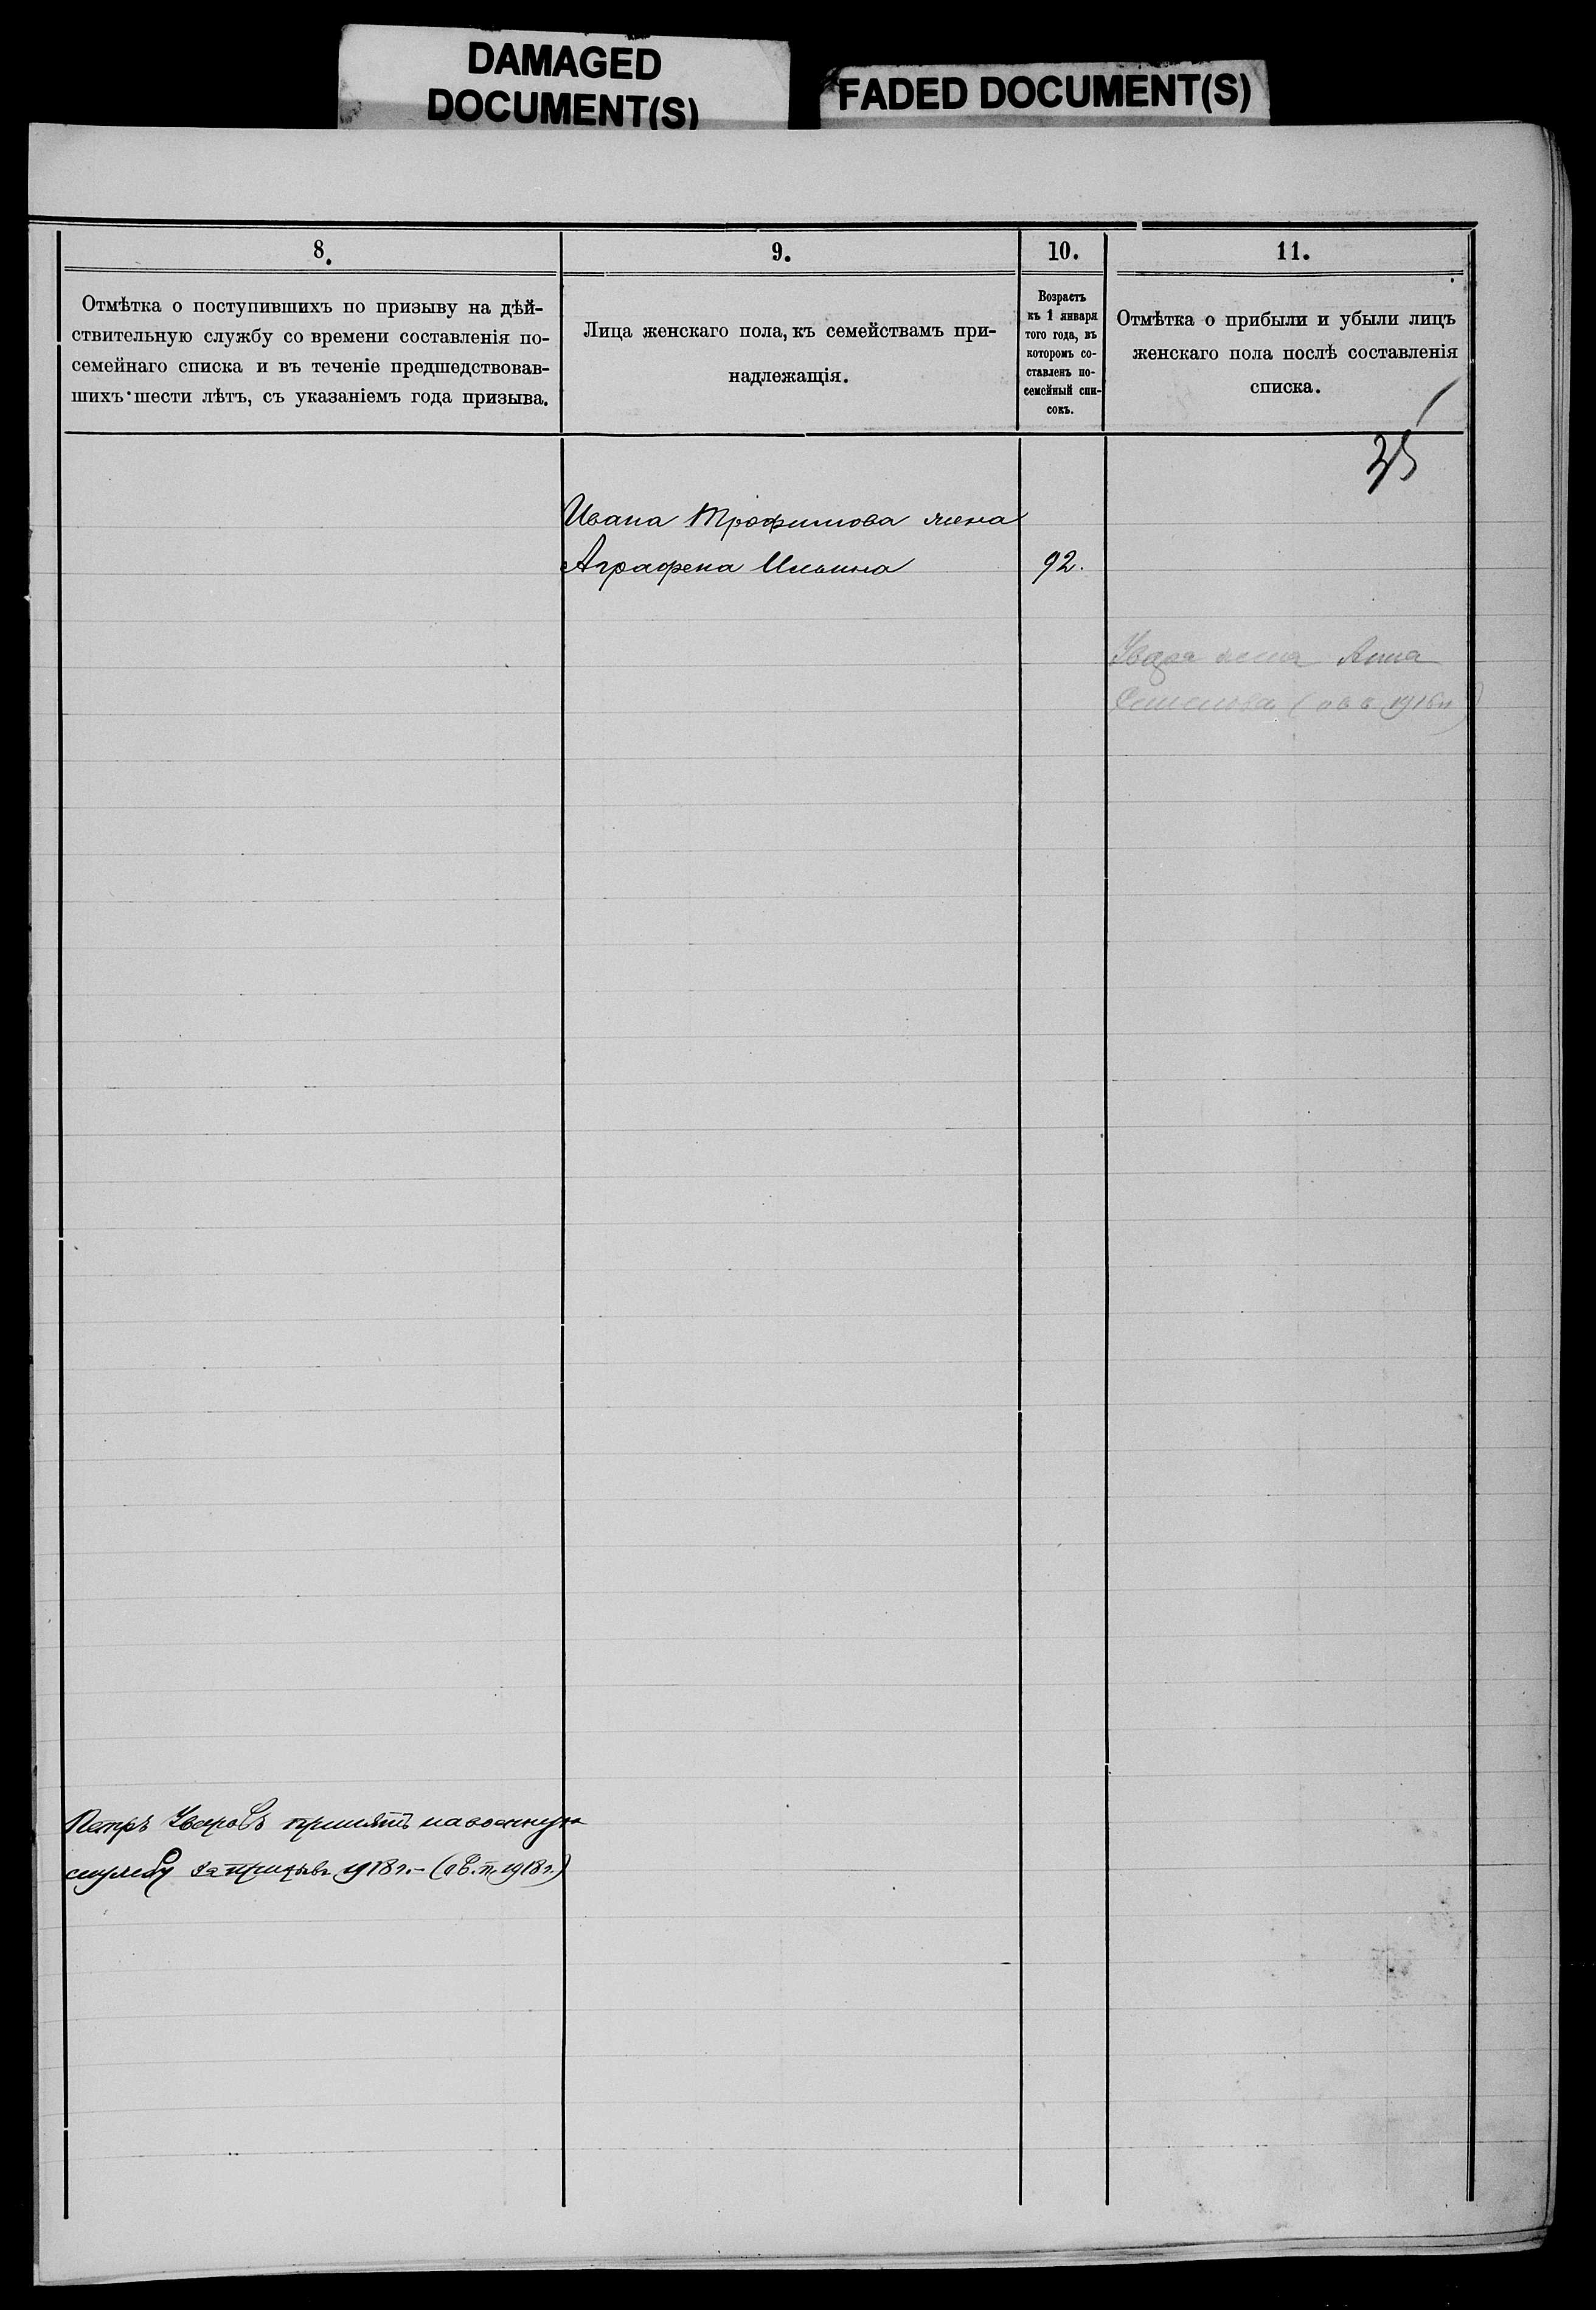 DAMAGED
DOCUMENT(S)
FADED DOCUMENT(S)
8.
9.
10.
11.
Отмѣтка о поступившихъ по призыву на дѣй-
ствительную службу со времени составленія по-
семейнаго списка и въ теченіе предшедствовав-
шихъ шести лѣтъ, съ указаніемъ года призыва.
Лица женскаго пола, къ семействамъ при-
надлежащія.
Возрастъ
къ 1 января
того года, въ
которомъ со-
ставленъ по-
семейный спи-
сокъ.
Отмѣтка о прибыли и убыли лицъ
женскаго пола послѣ составленія
списка.
35
Ивана Трофимова жена
Аграфена Ильина
92.
Увара жена Анна
Петръ Уваровъ принятъ на военную
службу въ призывъ 1918 г.-